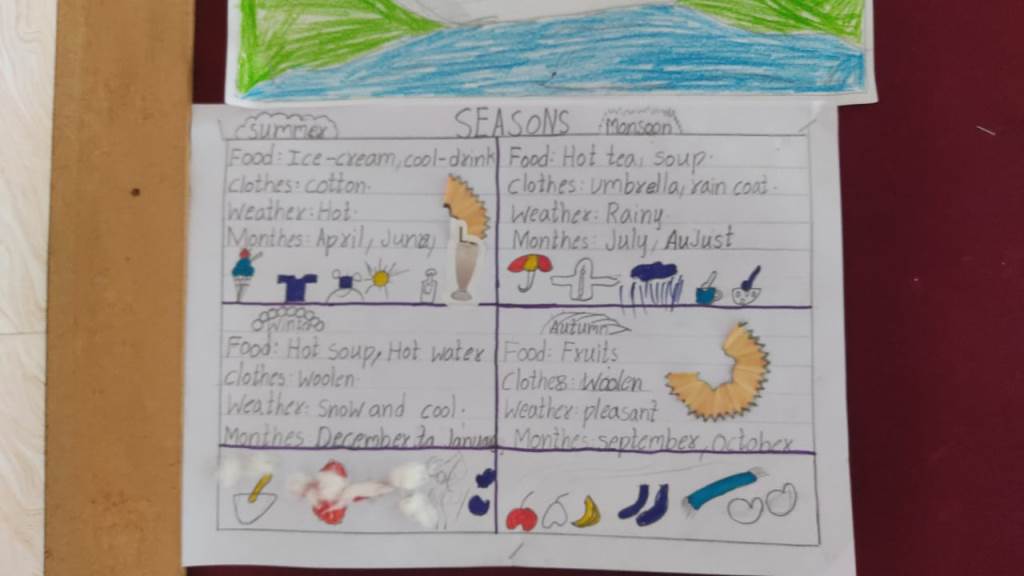 SEASONS
summer
Food: Ice-cream, cool-drink
Clothes: cotton.
Weather: Hot.
Monthes: April, June,
Monsoon
Food: Hot tea, soup.
Clothes: umbrella, rain coat.
Weather: Rainy
Monthes: July, AuJust
winter
Food: Hot soup, Hot water
Clothes: Woolen.
Weather: Snow and cool.
Monthes December to
Autumn
Food: Fruits
Clothes: Woolen
Weather: pleasant
Monthes: september, October